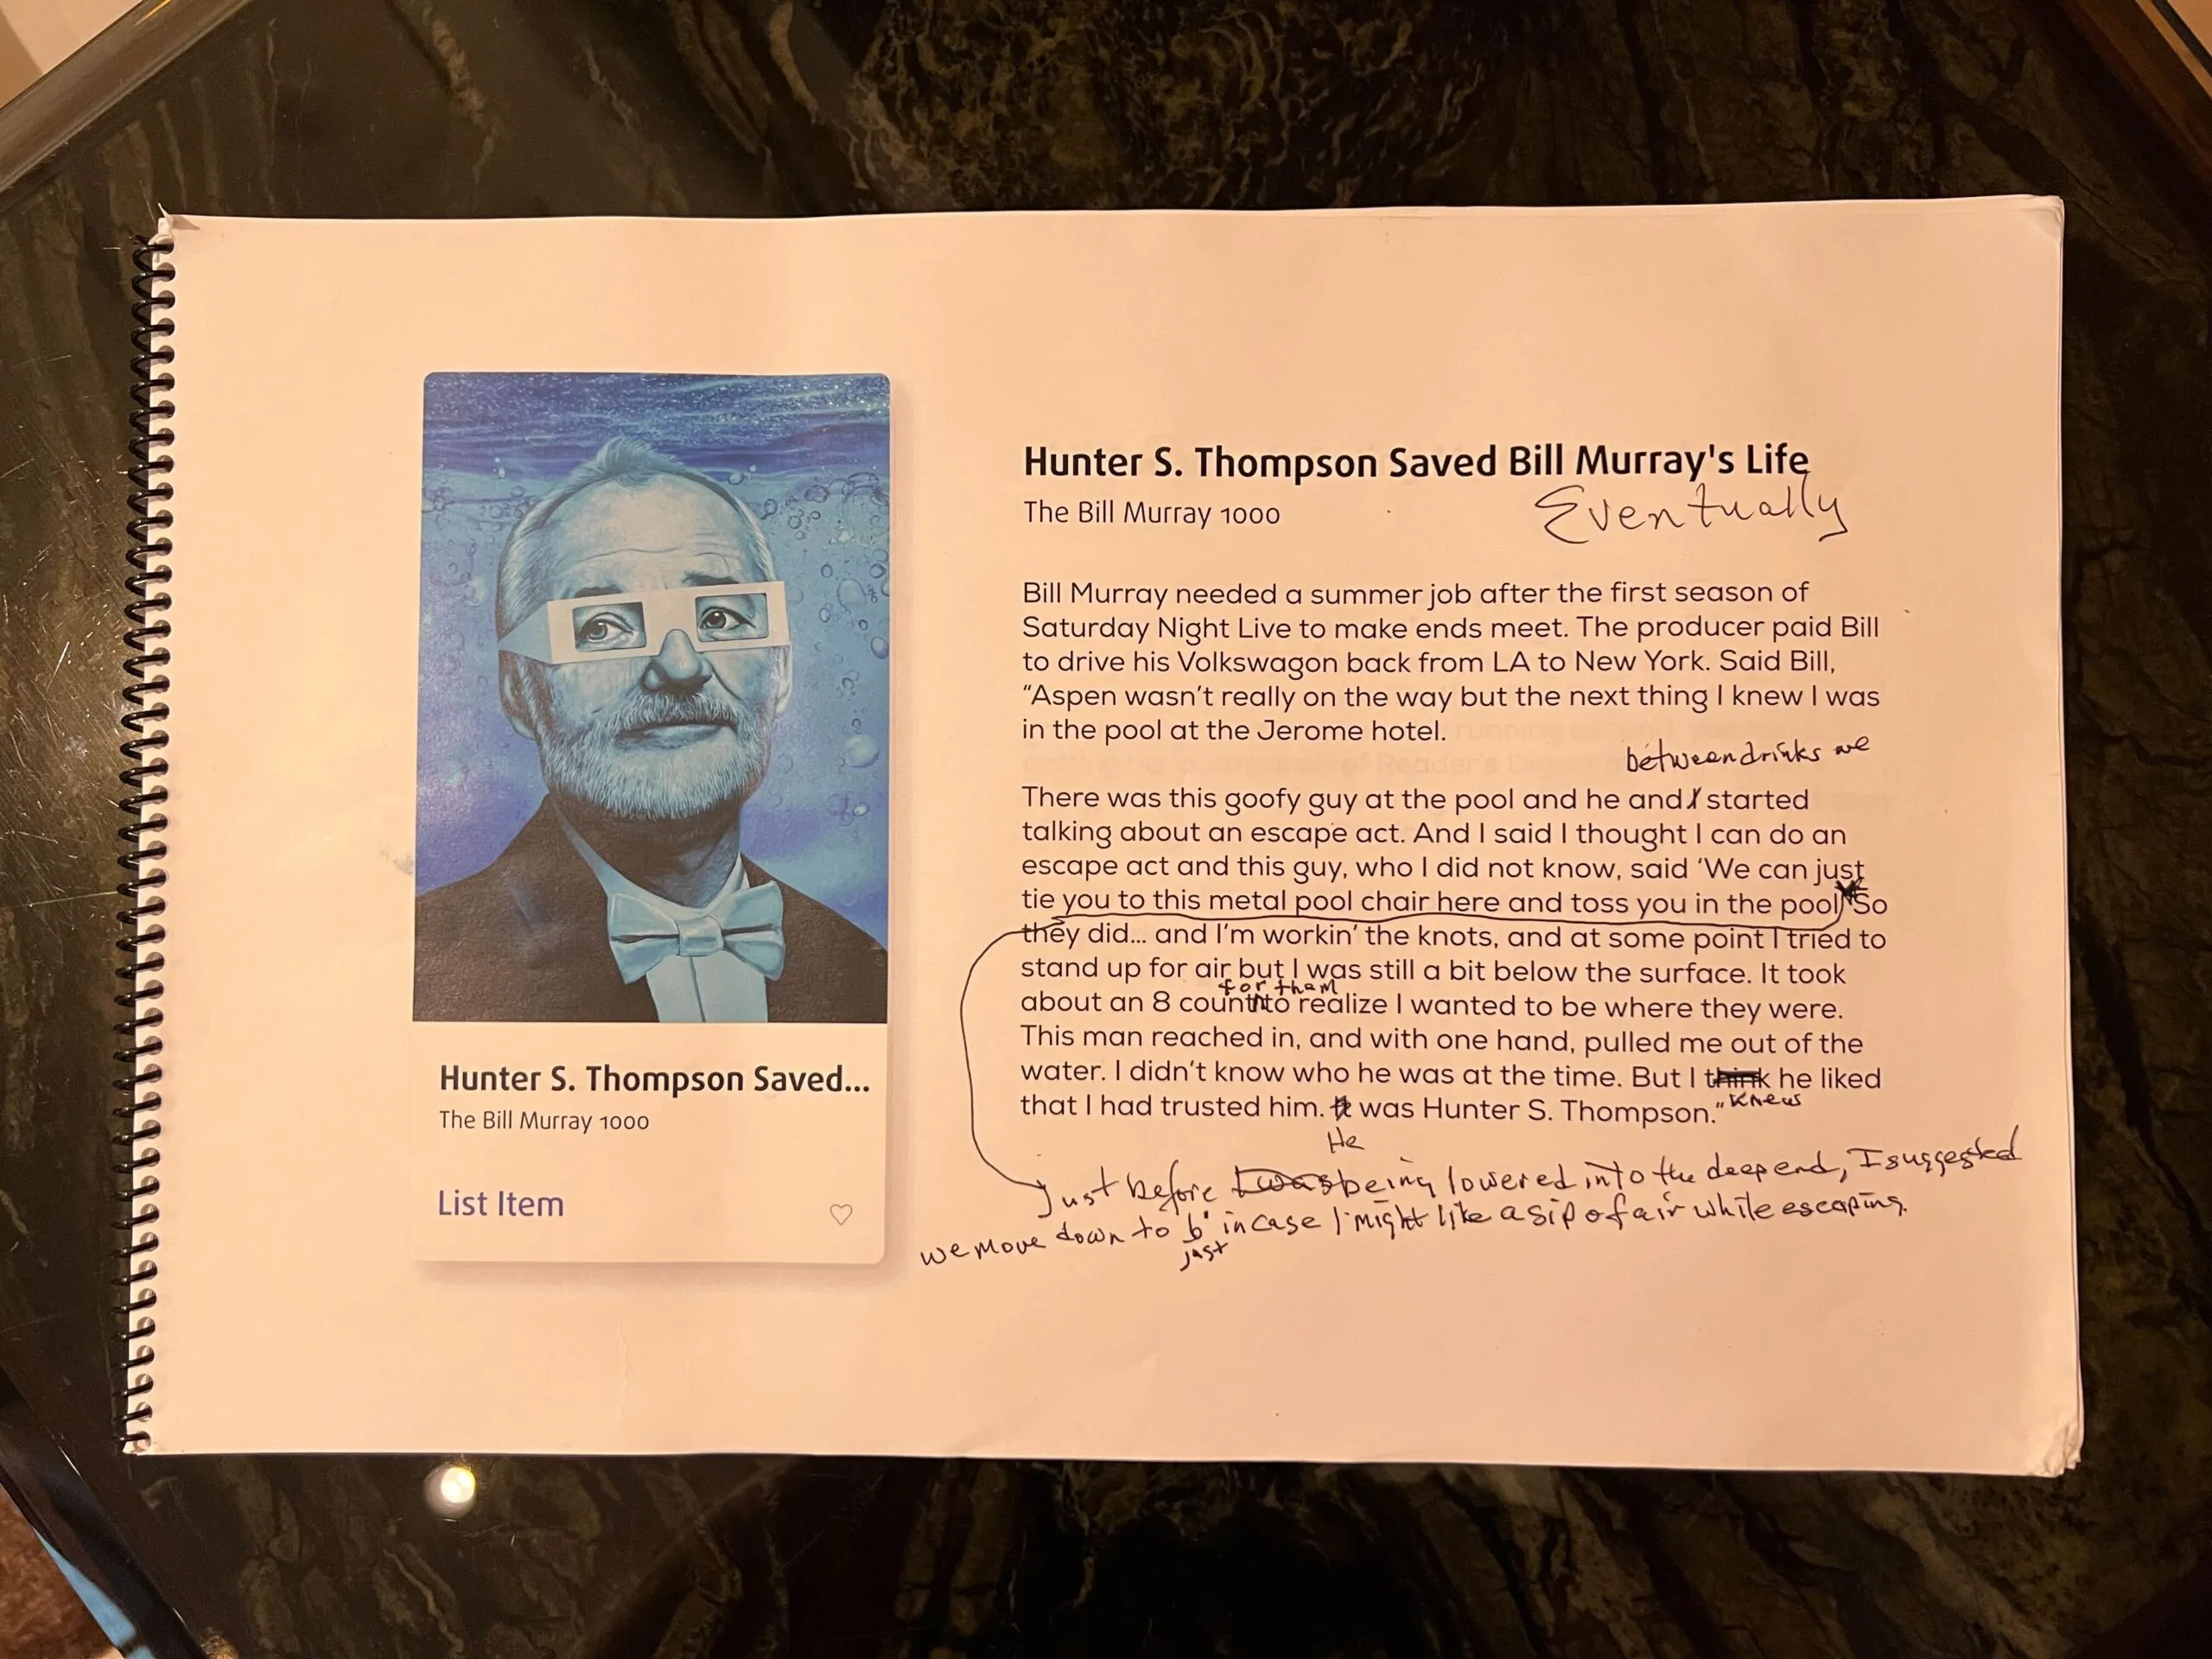 Hunter S. Thompson Saved...
The Bill Murray 1000
List Item
Hunter S. Thompson Saved Bill Murray's Life
Eventually
The Bill Murray 1000
Bill Murray needed a summer job after the first season of
Saturday Night Live to make ends meet. The producer paid Bill
to drive his Volkswagon back from LA to New York. Said Bill,
“Aspen wasn’t really on the way but the next thing I knew I was
in the pool at the Jerome hotel.
between drinks we
There was this goofy guy at the pool and he and I started
talking about an escape act. And I said I thought I can do an
escape act and this guy, who I did not know, said ‘We can just
tie you to this metal pool chair here and toss you in the pool So
they did... and I’m workin’ the knots, and at some point I tried to
stand up for air but I was still a bit below the surface. It took
for them
about an 8 count to realize I wanted to be where they were.
This man reached in, and with one hand, pulled me out of the
water. I didn’t know who he was at the time. But I think he liked
knew
that I had trusted him. It was Hunter S. Thompson.”
He
Just before I was being lowered into the deep end, I suggested
we move down to 6' in case I might like a sip of air while escaping.
just